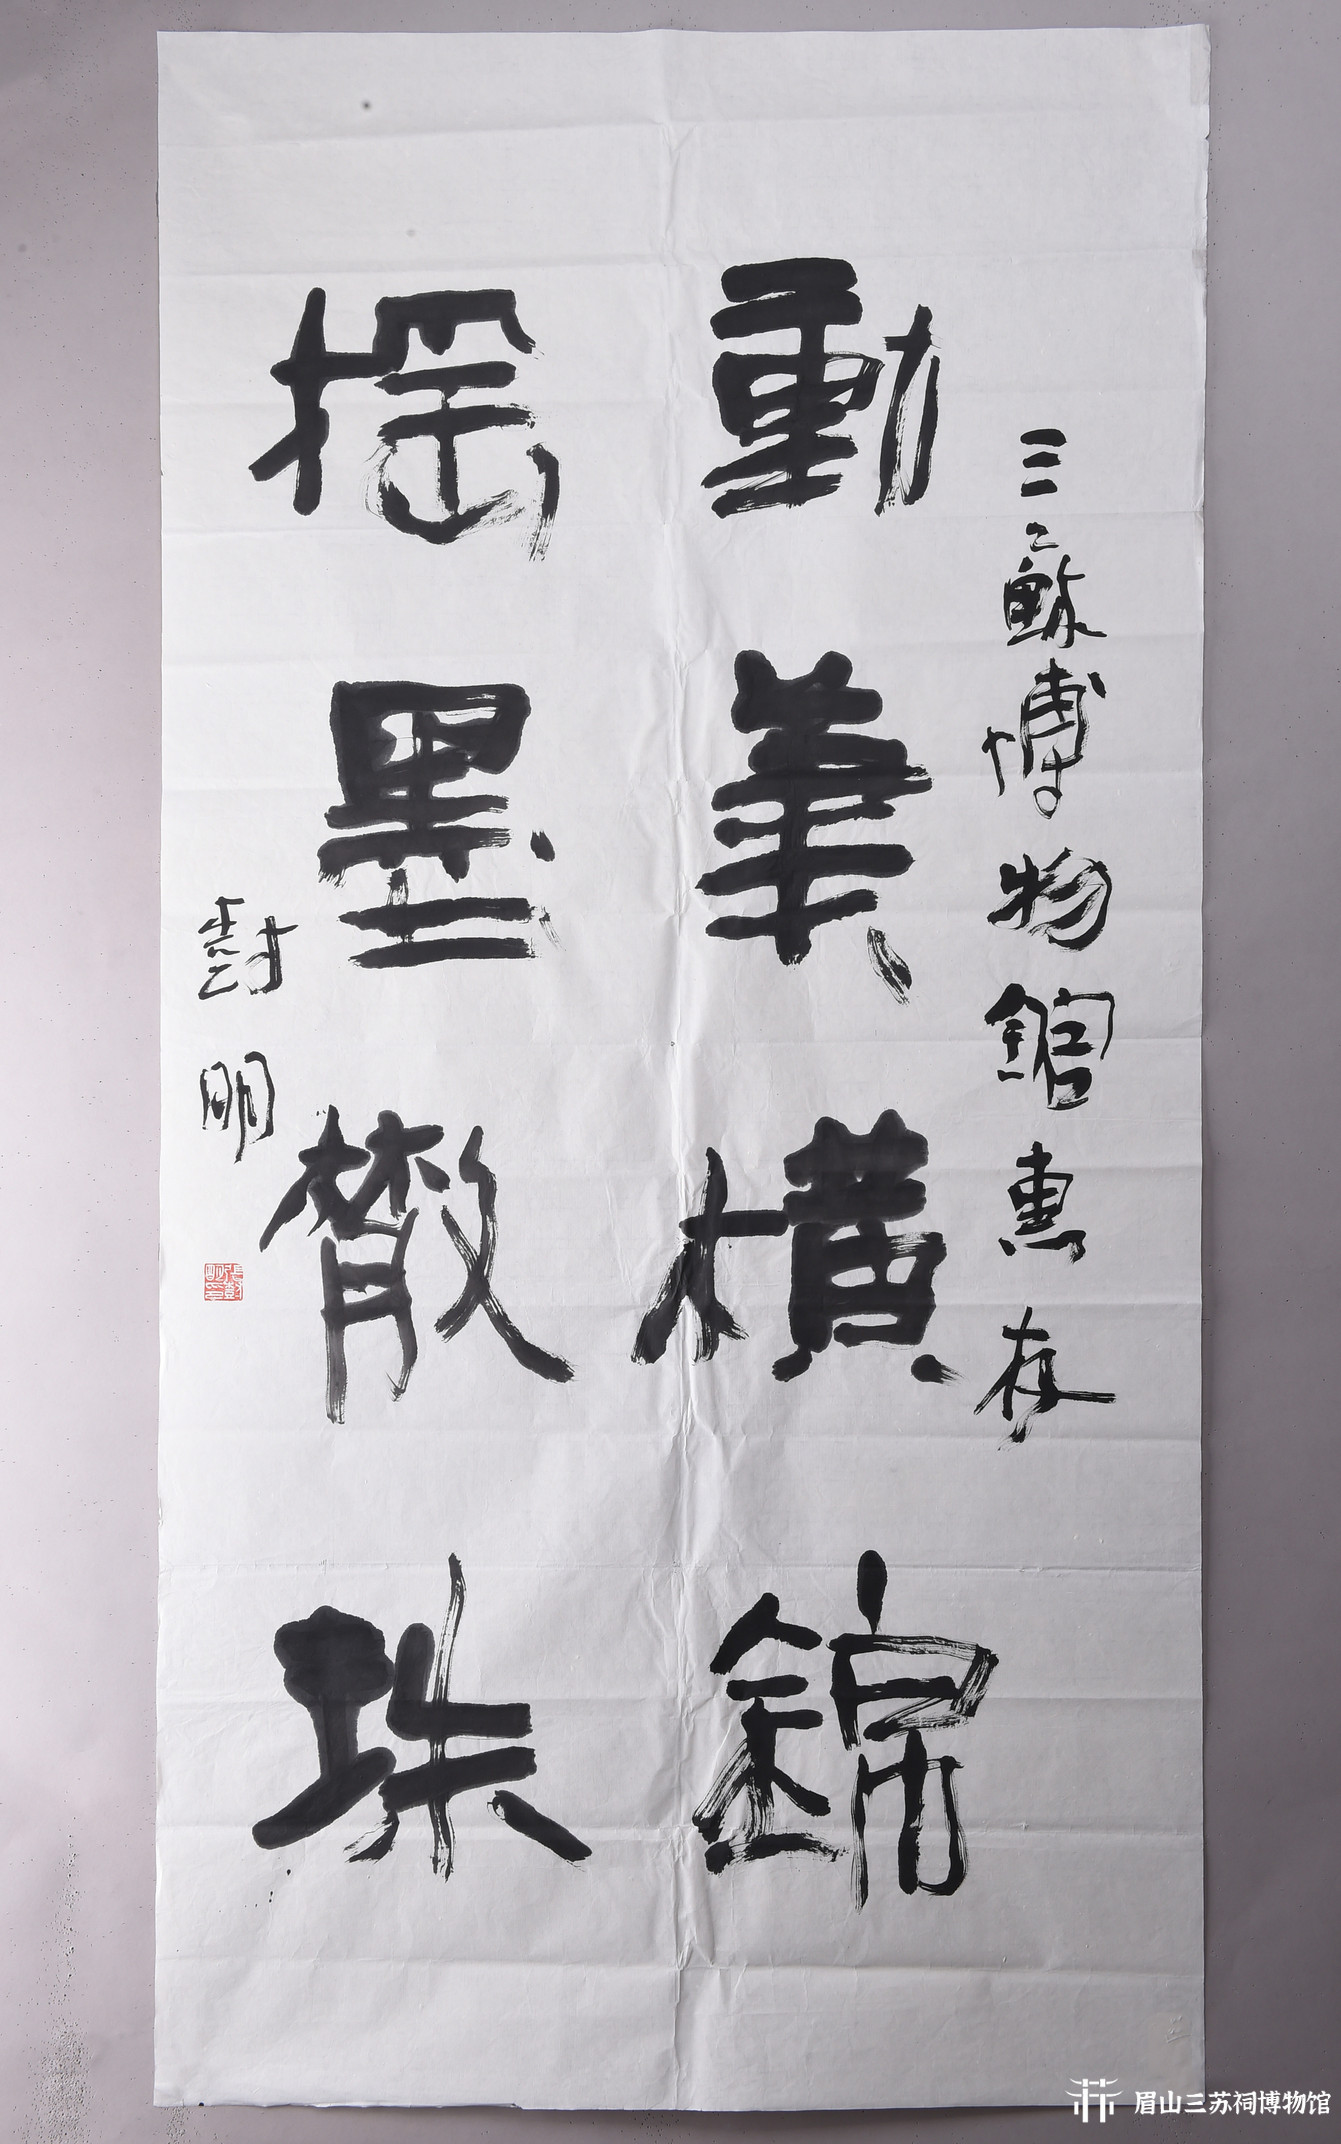 三蘇博物館惠存
動筆橫錦
搖墨散珠
尌明
眉山三苏祠博物馆